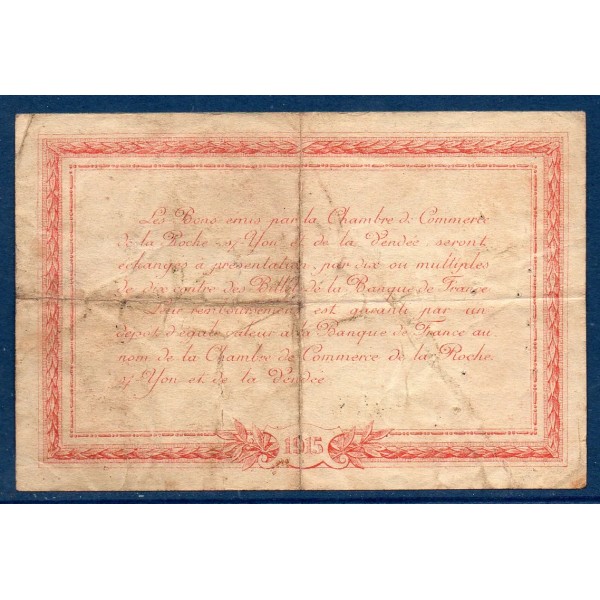 Les Bons émis par la Chambre de Commerce
de la Roche s/ Yon et de la Vendée seront
échangés à présentation, par dix ou multiples
de dix contre des Billets de la Banque de France
Leur remboursement est garanti par un
dépôt d'égale valeur à la Banque de France au
nom de la Chambre de Commerce de la Roche
s/ Yon et de la Vendée
1915